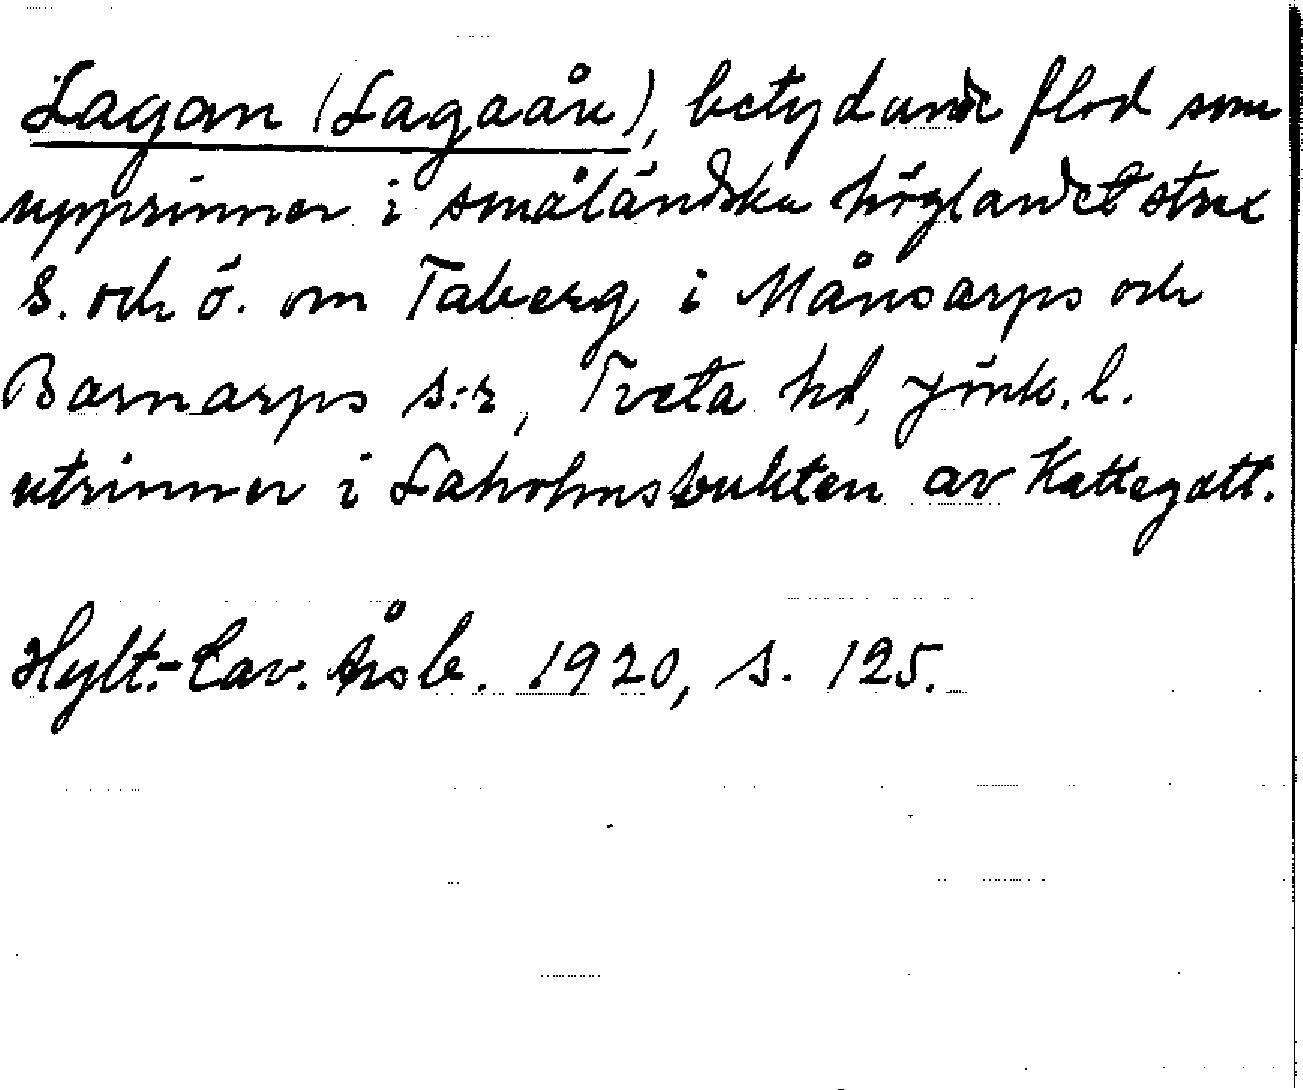 Lagan (Lagaån), betydande flod som
upprinner i småländska höglandet strax
S. och ö. om Taberg i Månsarps och
Barnarps s:r, Tveta hd, Jönk. l.
utrinner i Laholmsbukten av Kattegatt.
Hylt.-Cav. Årsb. 1920, s. 125.